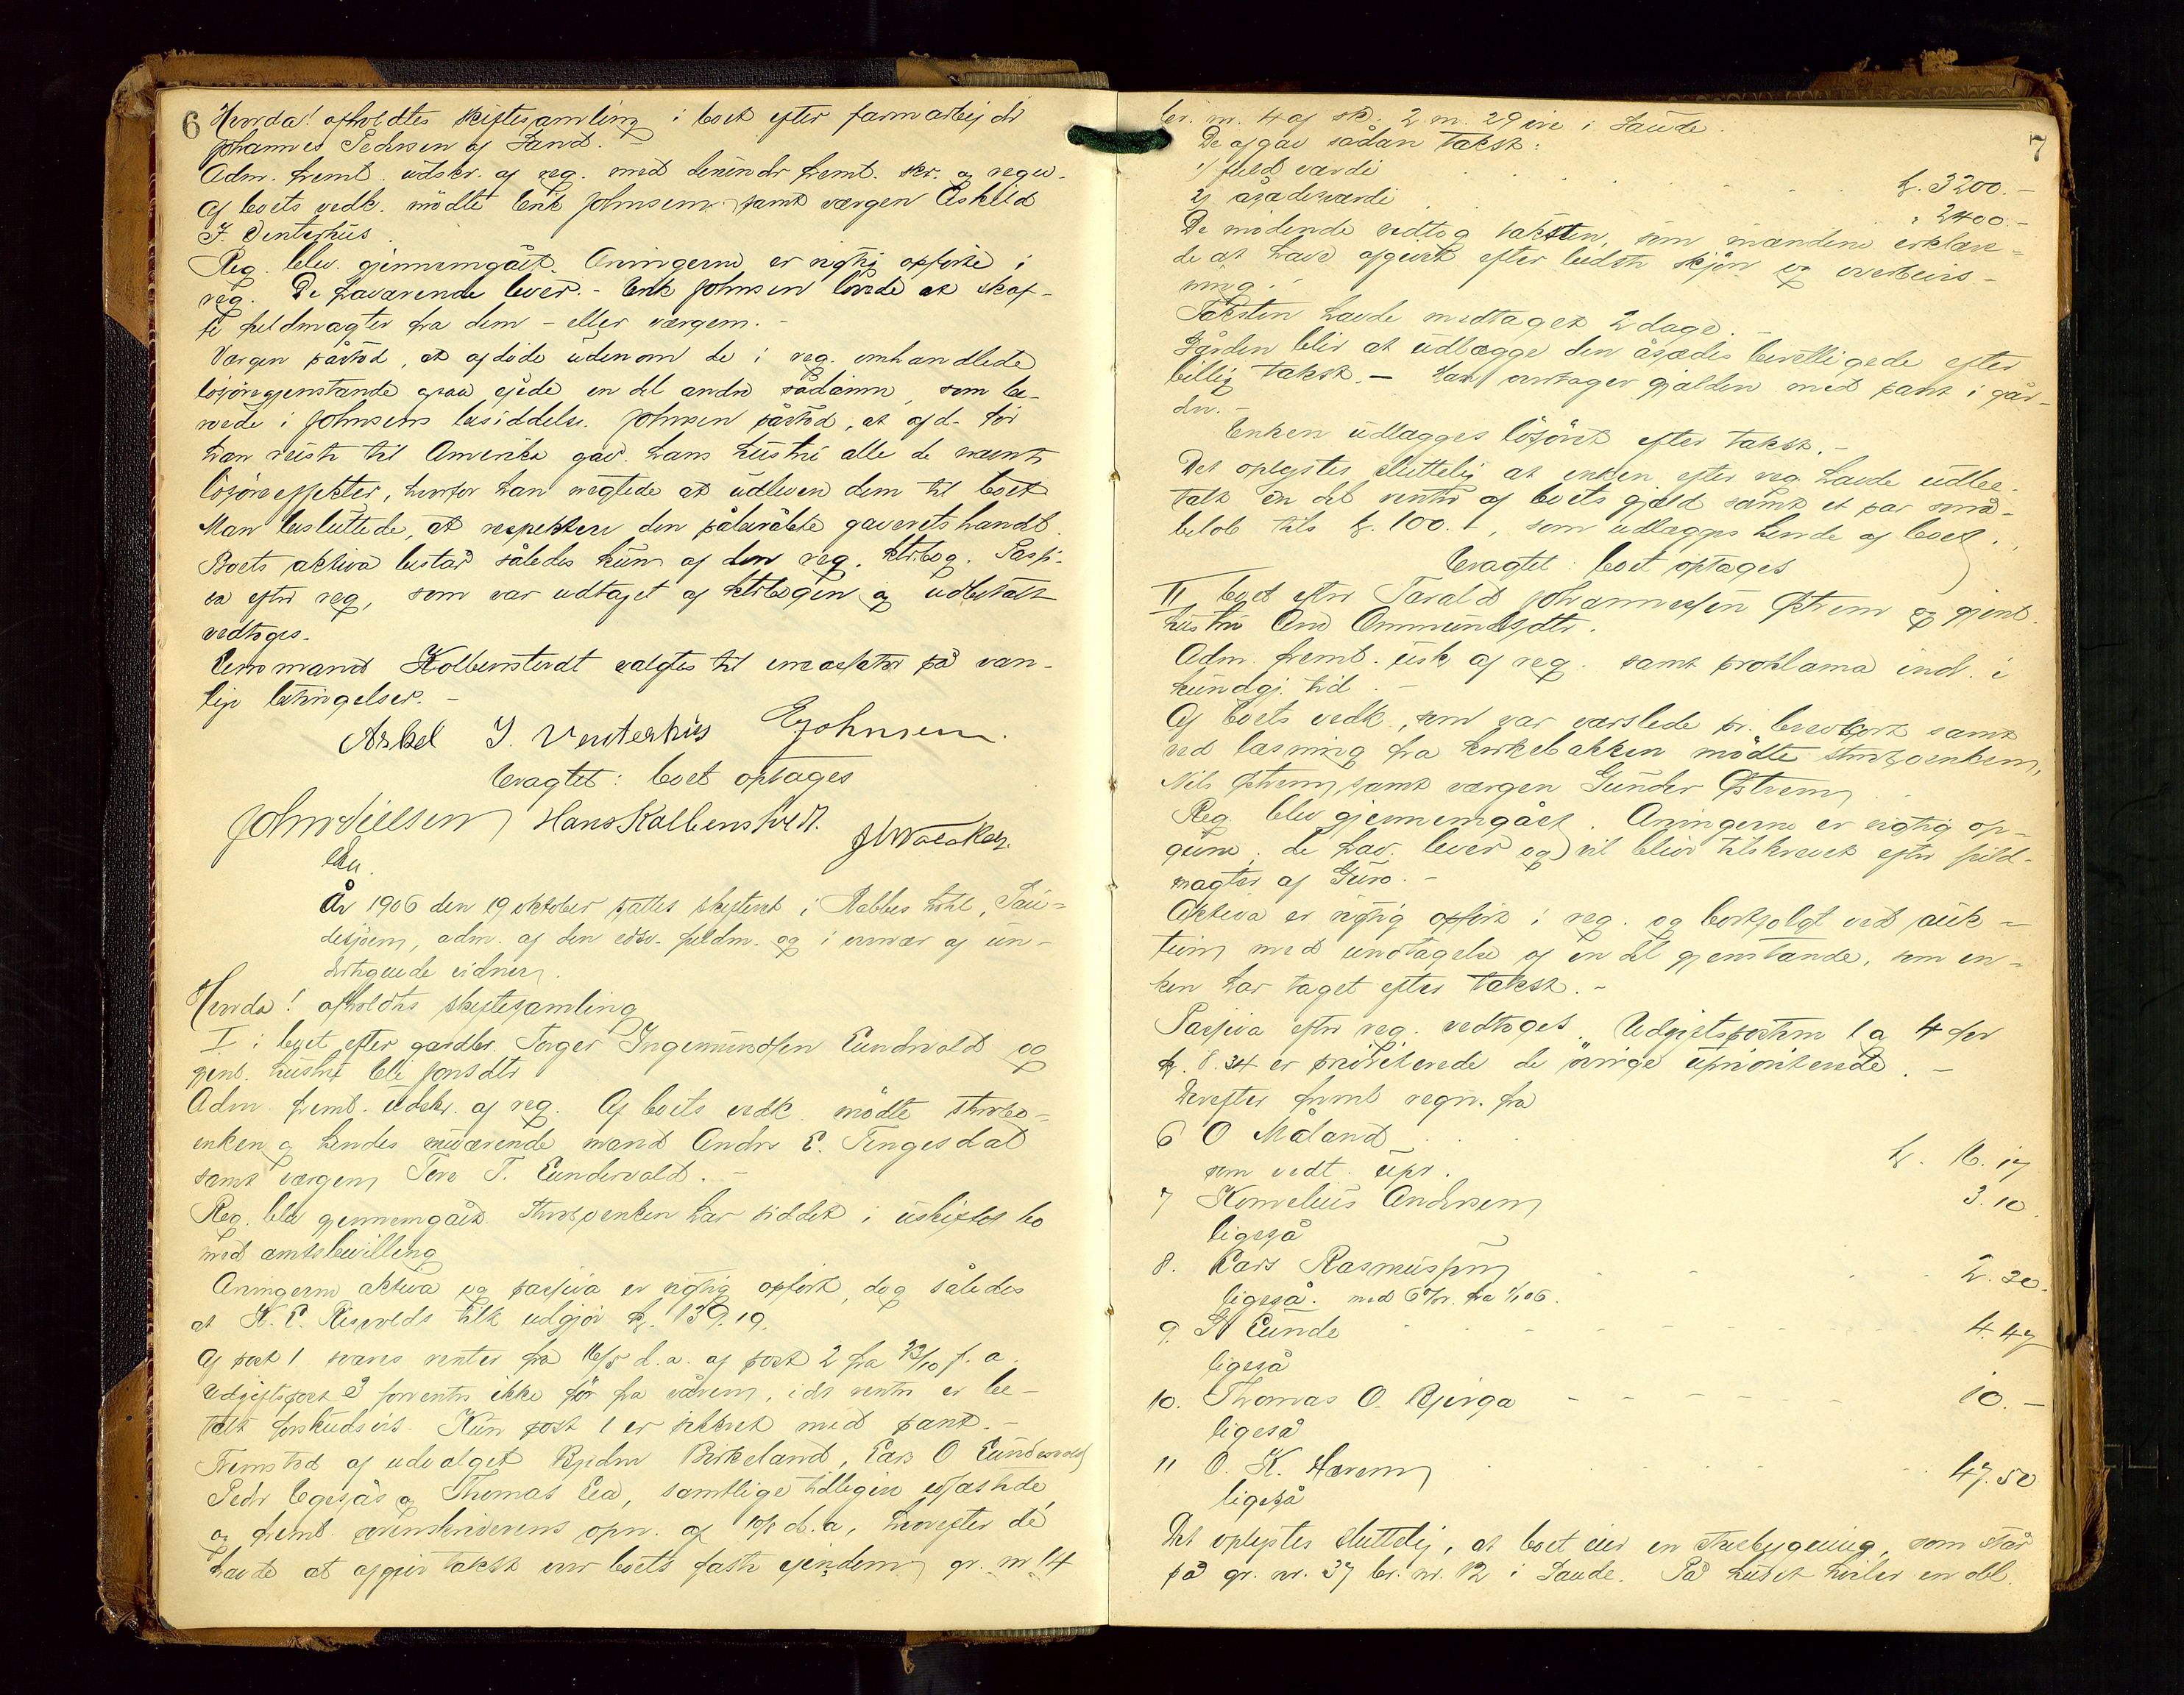 6
Hvorda! afholdtes skiftesamling i boet efter farmarbejder
Johannes Pedersen af Sand. —
Adm. freml. udskr. af reg. med derunder freml. skr. og regn.
Af boets vedk. mödte Erik Johnsen samt værgen Askild
J. Venterhus.
Reg. blev gjennemgået. Arvingerne er rigtig opförte i
reg. De fraværende lever. – Erik Johnsen lovede at skaf-
fe fuldmagter fra dem – eller værgem. –
Værgen påstod, at afdöde udenom de i reg. omhandlede
lösöregjenstande ejede en del andre sådanne, som be-
roede i Johnsens besiddelse. Johnsen påstod, at afd. för
han reiste til Amerika gav hans hustru alle de nævnte
lösöreeffekter, hvorfor han negtede at udlevere dem til boet
Man besluttede, at respektere den påberåbte gavehandel.
Boets aktiva består således kun af den reg. ktrbog. Passi-
va efter reg, som var udtaget af ktrbogen og udbetalt
vedtoges.
Lensmand Kolbenstvedt valgtes til incassator på van-
lige betingelser. –
Askel J. Venterhus EJohnsen.
Eragtet: boet optages
John Nielsen Hans Kolbenstvedt.
År 1906 den 19 oktober sattes skifteret i Rabbes hotel, Sau-
desjöen, adm. af den edsv. fuldm. og i nærvær af un-
dertegnede vidner.
Hvorda! afholdtes skiftesamling
I i boet efter gardbr. Torger Ingemundsen Lundervold og
gjenl. hustru Eli Jonsdtr
Adm freml. udskr. af reg. Af boets vedk. mödte stervbo-
enken og hendes nuværende mand Anders E. Tengesdal
samt værgen Tore T. Lundervold. –
Reg. blev gjennemgået. Stervboenken har siddet i uskiftet bo
med amtsbevilling
Arvingerne aktiva og passiva er rigtig opfört, dog således
at K. E. Risvolds tilk udgjör kr. 139.19.
Af post 1 svares renter fra 16/5 d.a. af post 2 fra 23/10 f. a.
Udgiftspost 3 forrentes ikke för fra våren, idet renten er be-
talt forskudsvis. Kun post 1 er sikkret med pant. –
Fremstod af udvalget Peder Birkeland, Lars O Lundervold
Peder Egesås og Thomas Lea, samtlige tidligere edfæstede,
og freml. sorenskriverens opn. af 10/8 d.a., hvorefter de
havde at afgive takst over boets faste ejendom gr. nr 14
7
br. nr. 4 af sk. 2 m. 29 øre i Saude.
De afgav sådan takst:
1) fuld værdi kr. 3200. –
2) åsædesværdi " 2400. –
De mödende vedtog taksten, som mændene erklære-
de at have afgivet efter bedste skjön og overbevis-
ning. –
Taksten havde medtaget 2 dage. –
Gården blir at udlægge den åsædesberettigede efter
billig takst. – Han overtager gjælden med pant i går-
den. –
Enken udlægges lösöret efter takst. –
Det oplystes sluttelig at enken efter reg. havde udbe-
talt en del renter af boets gjæld samt et par små-
belöb tils kr. 100. –, som udlægges hende af boet.
Eragtet: boet optages
II boet efter Tarald Johannessen Østrem og gjenl.
hustru Ane Ommundsdtr.
Adm. freml. usk af reg. samt proklama ind. i
kundgj. tid. –
Af boets vedk., som var varslede pr. brevkort samt
ved læsning fra kirkebakken mödte stervboenken,
Nils Østrem, samt værgen Gunder Østrem
Reg. blev gjennemgået. Arvingerne er rigtig op-
givne, de frav. lever og vil blive tilskrevet efter fuld-
magter af Guro. –
Aktiva er rigtig opfört i reg. og bortsolgt ved auk-
tion med undtagelse af en del gjenstande, som en-
ken har taget efter takst. –
Passiva efter reg. vedtoges. Udgiftsposterne 1 a 4 for
kr. 8.34 er prioriterede de övrige uprioriterede. –
Derefter freml regn. fra
6 O Måland kr. 16.17
som vedt. upr.
7 Kornelius Andersen 3.10
ligeså
8. Lars Rasmussen 2.20.
ligeså. med 6 % r. fra 1/1 06.
9. Lunde 4.47
ligeså
10. Thomas O. Bjerga 10. –
ligeså
11 O. K. Havrem 47.50
ligeså
Det oplystes sluttelig, at boet eier en stuebygning, som står
på gr. nr. 37 br. nr. 12 i Saude. På huset hviler en obl.